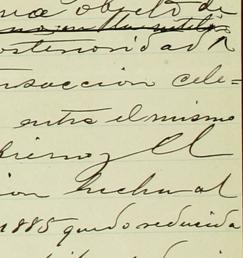 objeto de
posterioridad á
nsaccion cele=
entre el mismo
bierno y El
ion hecha al
1885 quedo reducida